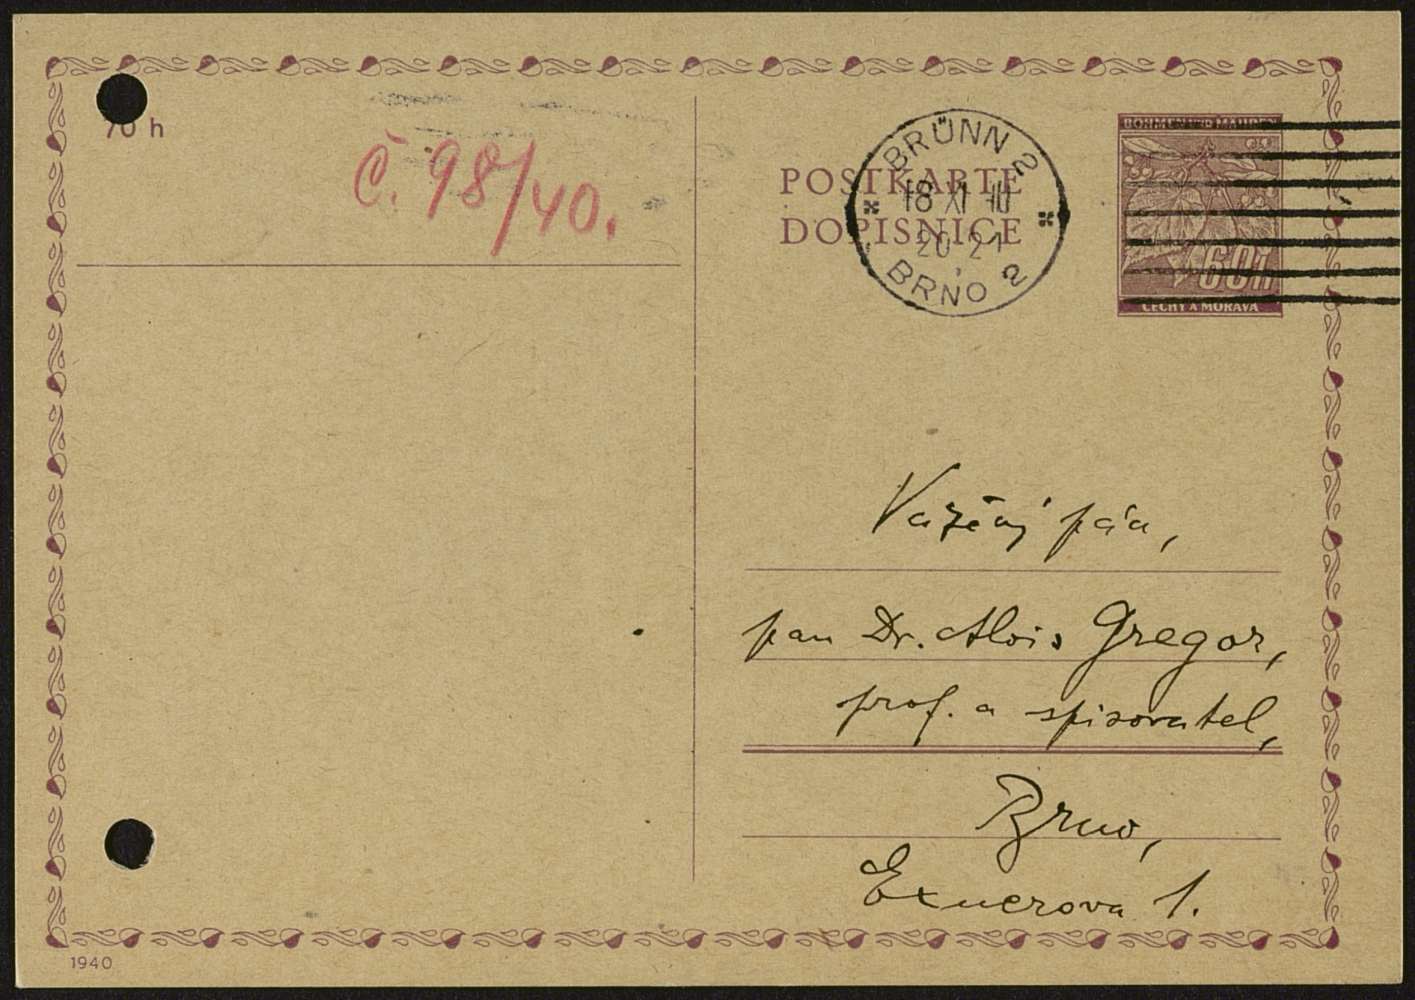 70 h
Č. 98/40.
POSTKARTE
DOPISNICE
BRÜNN 2
18 XI 40
20 21
BRNO 2
BÖHMEN UND MÄHREN
60h
ČECHY A MORAVA
Vážený pán,
pan Dr. Alois Gregor,
prof. a spisovatel,
Brno,
Exnerova 1.
1940